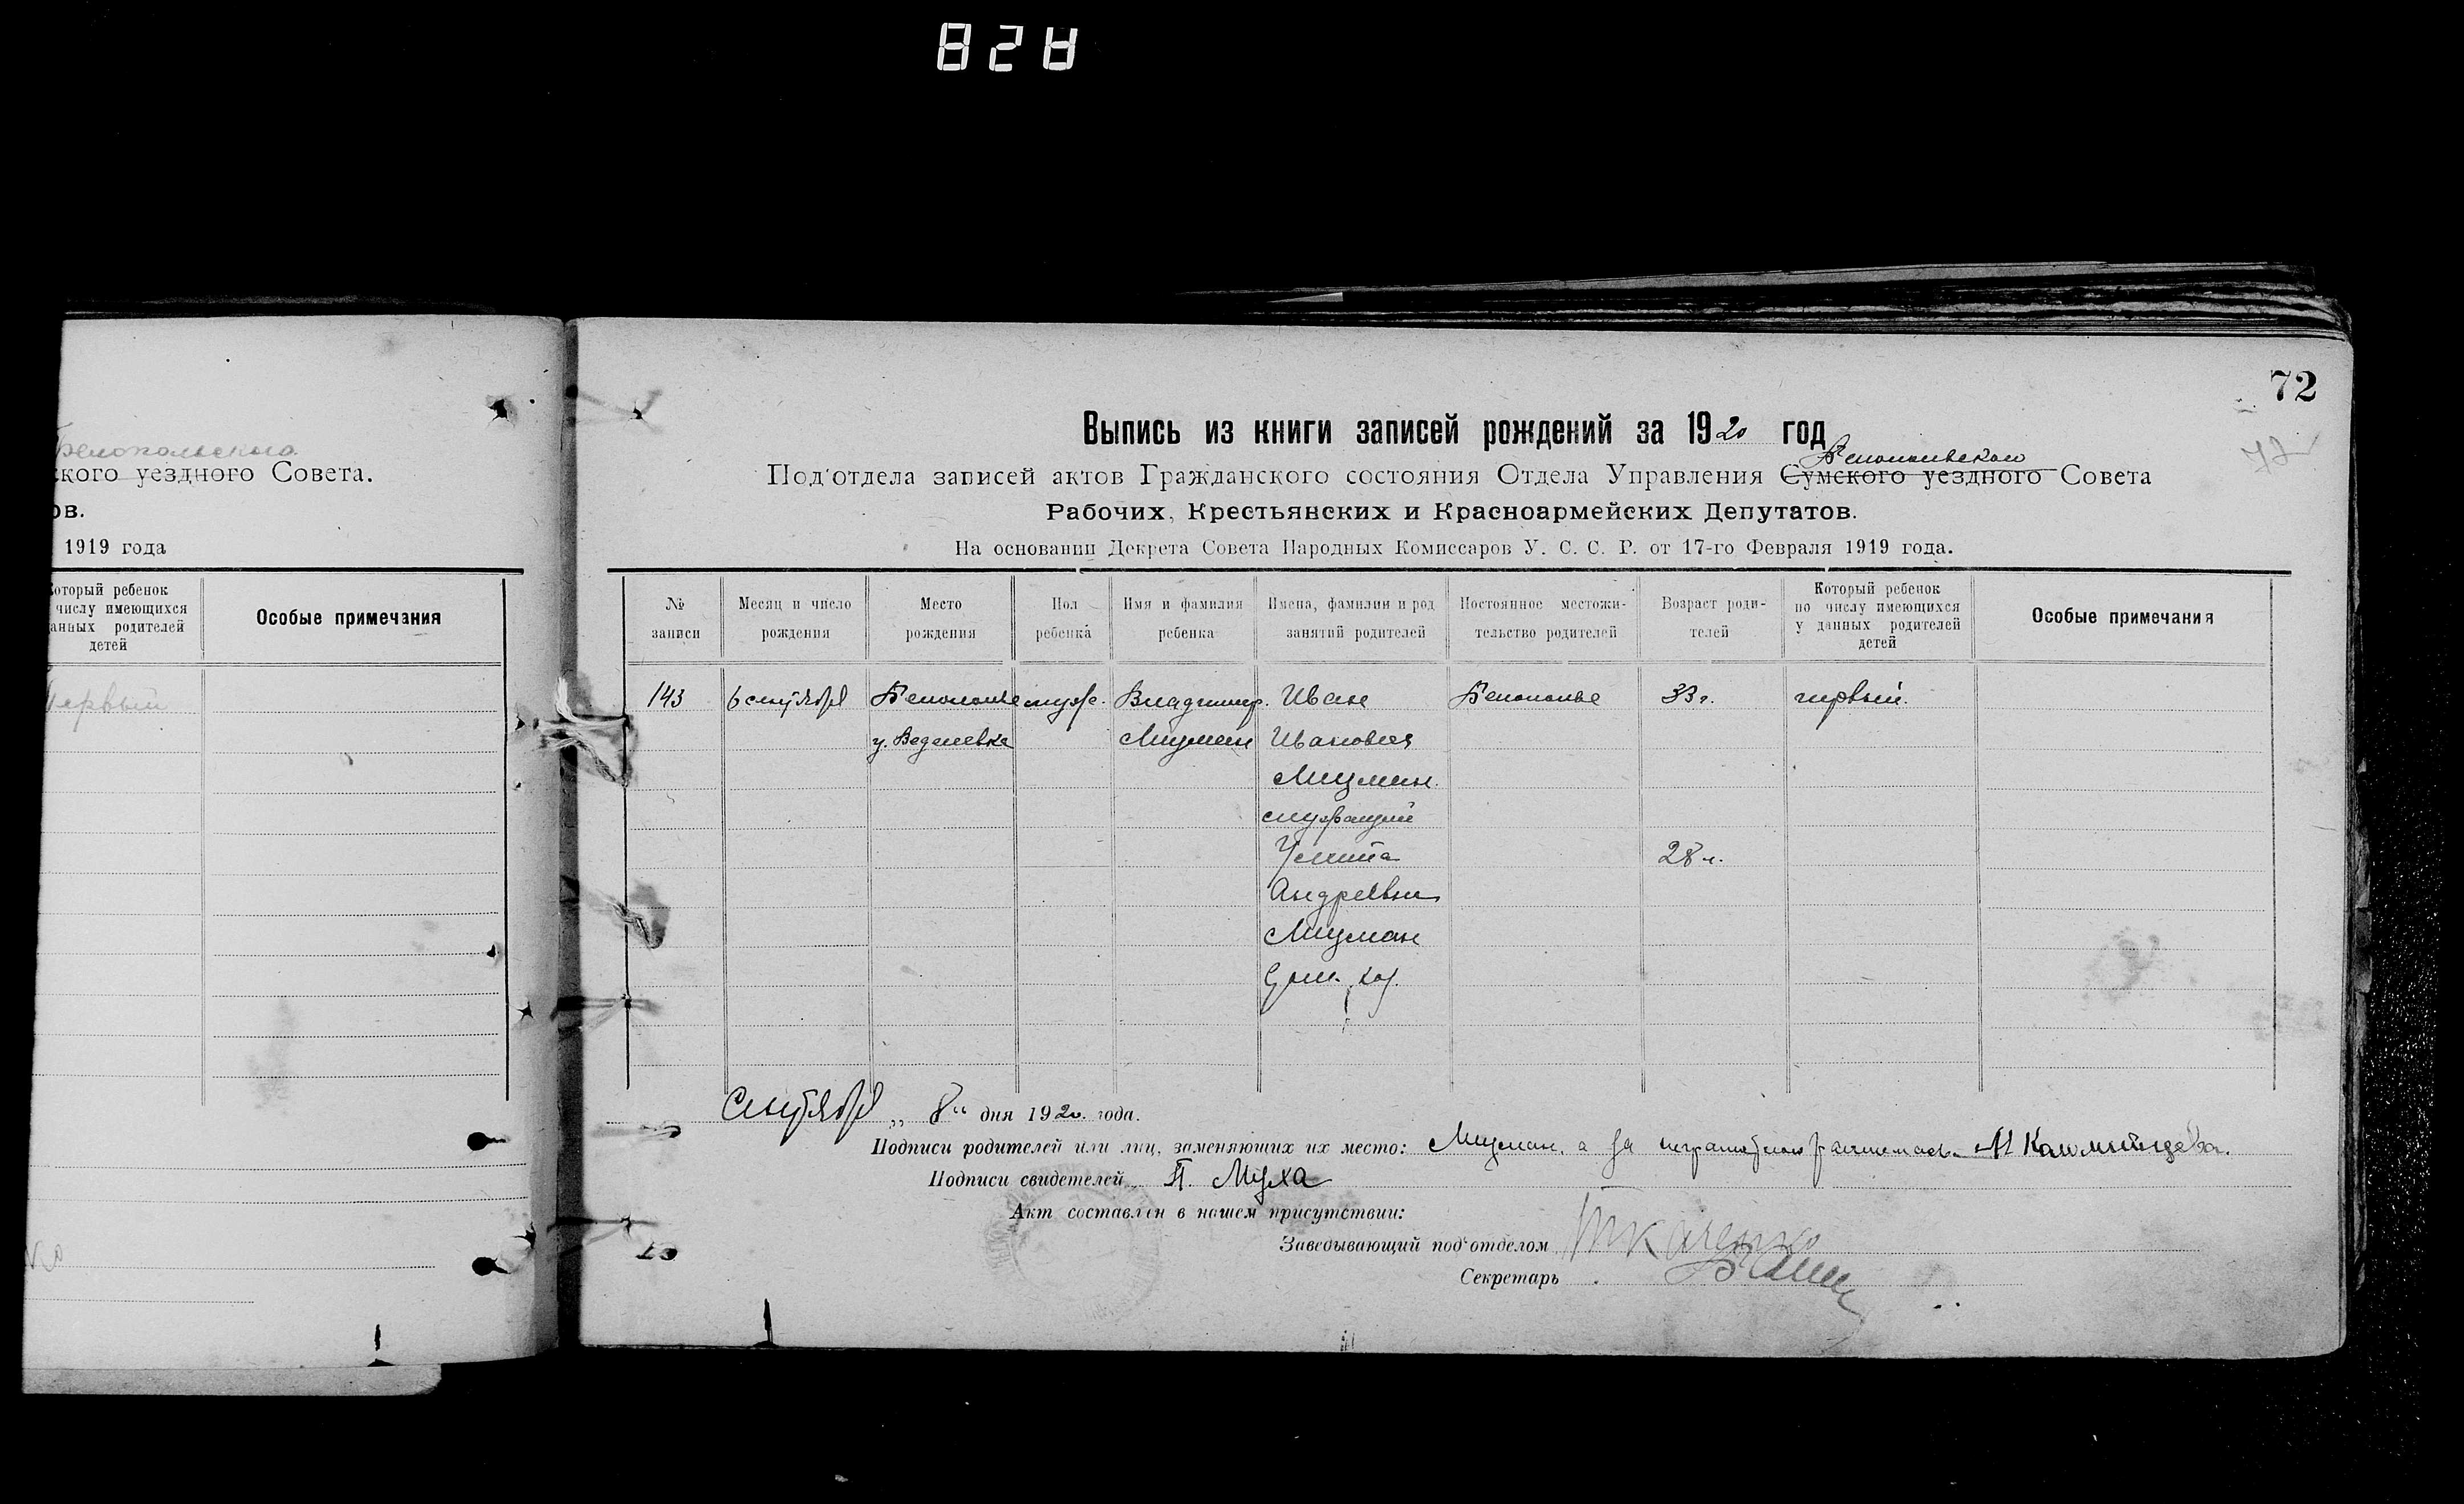 828
72
Белопольского
ского уездного Совета.
ов.
1919 года
Который ребенок
числу имеющихся
данных родителей
детей
Особые примечания
Первый
Выпись из книги записей рождений за 1920 год
Белопольского
Под'отдела записей актов Гражданского состояния Отдела Управления Сумского уездного Совета
Рабочих, Крестьянских и Красноармейских Депутатов.
На основании Декрета Совета Народных Комиссаров У. С. С. Р. от 17-го Февраля 1919 года.
№ записи
Месяц и число рождения
Место рождения
Пол ребенка
Имя и фамилия ребенка
Имена, фамилии и род занятий родителей
Постоянное местожительство родителей
Возраст родителей
Который ребенок по числу имеющихся у данных родителей детей
Особые примечания
143 6 сентября Белополье муж. Владимир Иван Белополье 33 г. первый.
Мицман Иванович
Мицман
служащий
28 л.
Андреевна
Мицман
дом. хоз.
Сентября „8“ дня 1920 года.
Подписи родителей или лиц, заменяющих их место: Мицман, а за неграмотного расписалась
Подписи свидетелей П. Муха
Акт составлен в нашем присутствии:
Заведывающий под'отделом Ткаченко
Секретарь